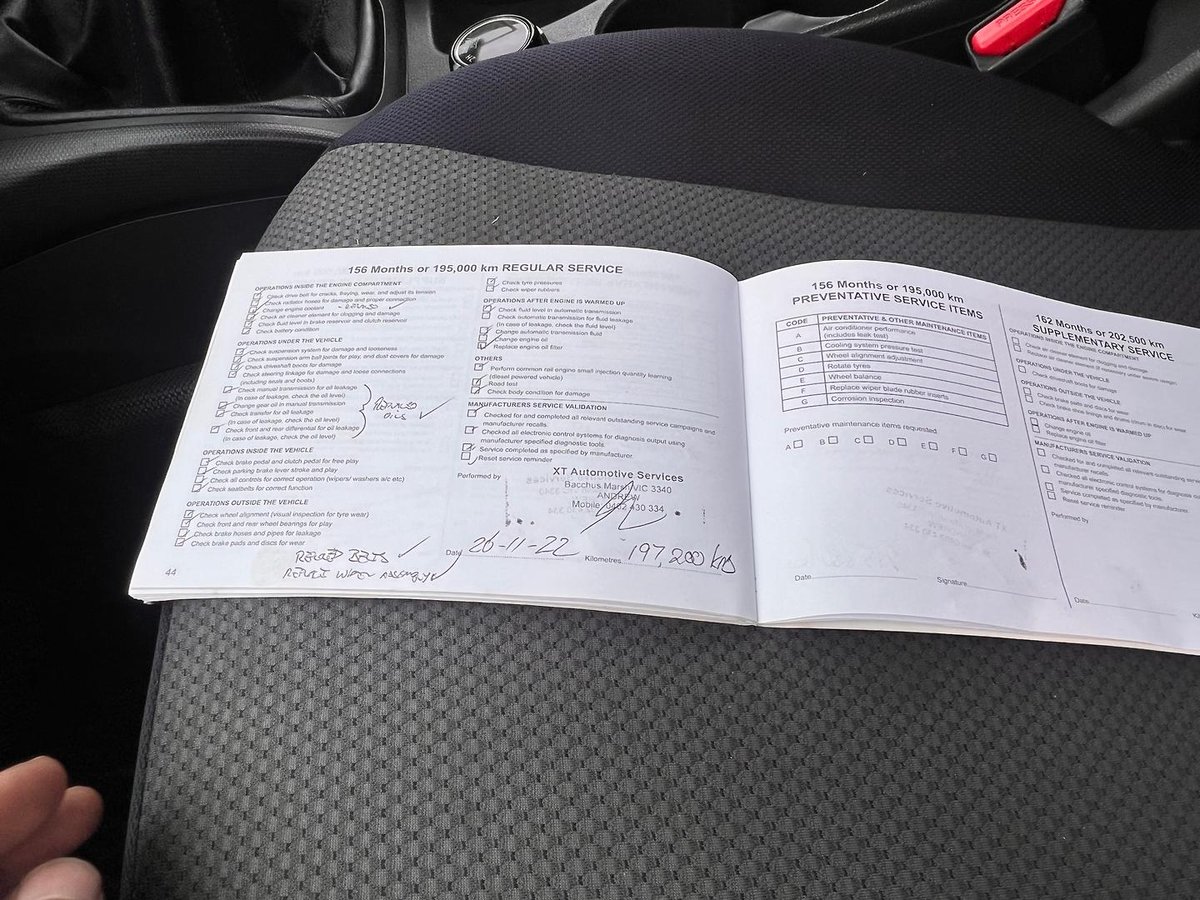 156 Months or 195,000 km REGULAR SERVICE
OPERATIONS INSIDE THE ENGINE COMPARTMENT
Check drive belt for cracks, fraying, wear, and adjust its tension
Check radiator hoses for damage and proper connection
Change engine coolant
Check air cleaner element for clogging and damage
Check fluid level in brake reservoir and clutch reservoir
Check battery condition
OPERATIONS UNDER THE VEHICLE
Check suspension system for damage and looseness
Check suspension arm ball joints for play, and dust covers for damage
Check driveshaft boots for damage
Check steering linkage for damage and loose connections
(including seals and boots)
Check manual transmission for oil leakage
(In case of leakage, check the oil level)
Change gear oil in manual transmission
Check transfer for oil leakage
(In case of leakage, check the oil level)
Check front and rear differential for oil leakage
(In case of leakage, check the oil level)
OILS
OPERATIONS INSIDE THE VEHICLE
Check brake pedal and clutch pedal for free play
Check parking brake lever stroke and play
Check all controls for correct operation (wipers/ washers a/c etc)
Check seatbelts for correct function
OPERATIONS OUTSIDE THE VEHICLE
Check wheel alignment (visual inspection for tyre wear)
Check front and rear wheel bearings for play
Check brake hoses and pipes for leakage
Check brake pads and discs for wear
BELTS
WIPER ASSEMBLY
44
Check tyre pressures
Check wiper rubbers
OPERATIONS AFTER ENGINE IS WARMED UP
Check fluid level in automatic transmission
Check automatic transmission for fluid leakage
(In case of leakage, check the fluid level)
Change automatic transmission fluid
Change engine oil
Replace engine oil filter
OTHERS
Perform common rail engine small injection quantity learning
(diesel powered vehicle)
Road test
Check body condition for damage
MANUFACTURERS SERVICE VALIDATION
Checked for and completed all relevant outstanding service campaigns and
manufacturer recalls.
Checked all electronic control systems for diagnosis output using
manufacturer specified diagnostic tools.
Service completed as specified by manufacturer.
Reset service reminder
Performed by
XT Automotive Services
Bacchus Marsh VIC 3340
ANDREW
Mobile 0402 430 334
Date 26-11-22 Kilometres 197,200 km
156 Months or 195,000 km
PREVENTATIVE SERVICE ITEMS
CODE PREVENTATIVE & OTHER MAINTENANCE ITEMS
A Air conditioner performance
(includes leak test)
B Cooling system pressure test
C Wheel alignment adjustment
D Rotate tyres
E Wheel balance
F Replace wiper blade rubber inserts
G Corrosion inspection
Preventative maintenance items requested
A B C D E F G
Date Signature
162 Months or 202,500 km
SUPPLEMENTARY SERVICE
OPERATIONS INSIDE THE ENGINE COMPARTMENT
Check air cleaner element for clogging and damage
OPERATIONS UNDER THE VEHICLE
Check driveshaft boots for damage
OPERATIONS OUTSIDE THE VEHICLE
Check brake pads and discs for wear
OPERATIONS AFTER ENGINE IS WARMED UP
Change engine oil
Replace engine oil filter
MANUFACTURERS SERVICE VALIDATION
Checked for and completed all relevant outstanding
manufacturer recalls.
Checked all electronic control systems for diagnosis
manufacturer specified diagnostic tools.
Service completed as specified by manufacturer.
Reset service reminder
Performed by
Date